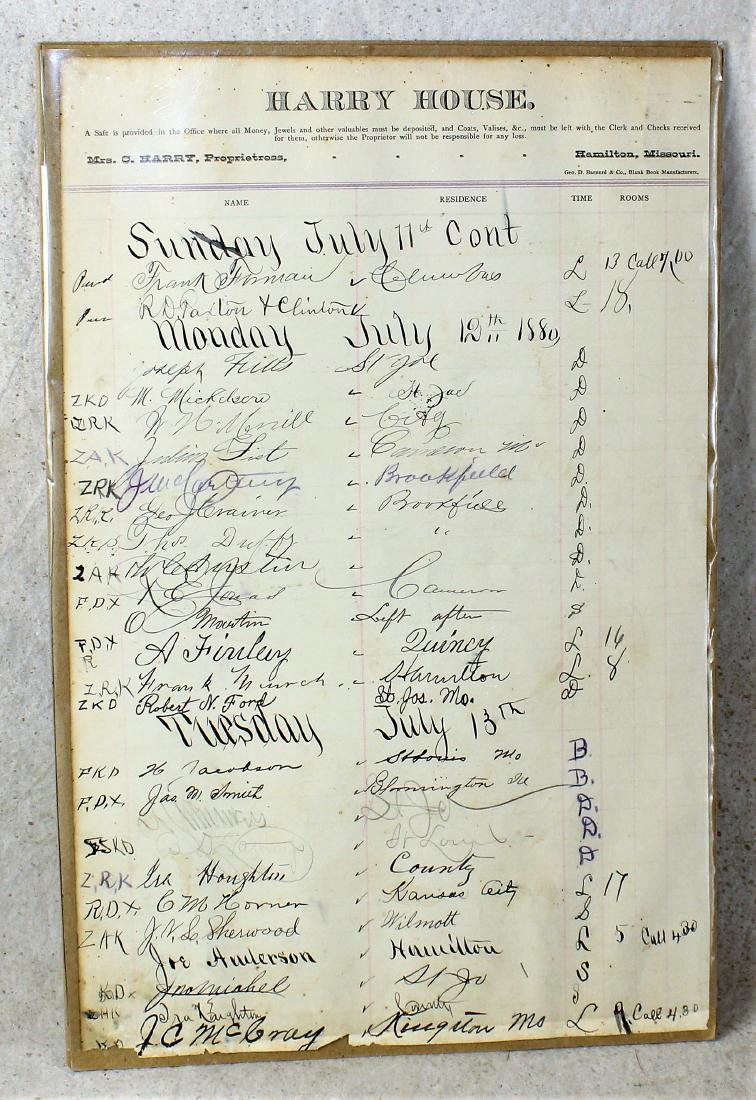 HARRY HOUSE.
A Safe is provided in the Office where all Money, Jewels and other valuables must be deposited, and Coats, Valises, &c., must be left with the Clerk and Checks received
for them, otherwise the Proprietor will not be responsible for any loss.
Mrs. C. HARRY, Proprietress, - - - - - Hamilton, Missouri.
Geo. D. Barnard & Co., Blank Book Manufacturers,
NAME RESIDENCE TIME ROOMS
Sunday July 11th Cont
Frank Forman Columbus L 13 Call 7.00
R.D. Paxton & Clinton L 18,
Monday July 12th 1880
Joseph Fitts St Joe D
ZKD M. Mickelson St. Joe D
ZRK W H Merrill City D
ZAK Julius List Cameron Mo D
ZRK Brookfield D
Z.R.K. Geo J Crainer Brookfield D.
Thos Duffy " D.
ZAK D.
F,D,X Cameron L.
O Mountin Left after S
F,D,X A Finley Quincy L 16
R
Z,R,K Frank Munch Hamilton L. 8
ZKD Robert N. Ford St. Jos. Mo. D
Tuesday July 13th
FKD H Jacobson St Louis Mo B.
F,D,X, Jas. M. Smith Bloomington Ill B.
St Jo D.
SKD St Joseph D.
Z,R,K Ira Houghton County D
R,D,X, C M Horner Kansas City L 17
ZAK J.V.L. Sherwood Wilmott L 5 Call 4.30
Joe Anderson Hamilton S
KDX Jno Michel St Jo S
Ira Houghton County
J.C. McCray Kingston Mo L 9, Call 4.30